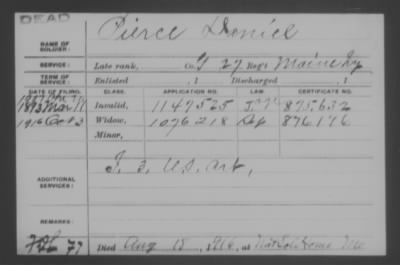 DEAD
NAME OF SOLDIER: Pierce Daniel
SERVICE: Late rank, Co. G 27 Reg't Maine Inf
TERM OF SERVICE: Enlisted , 1 Discharged , 1
DATE OF FILING. CLASS. APPLICATION NO. LAW. CERTIFICATE NO.
Invalid, 1149525 875632
1916 Oct 3 Widow, 1076218 876196
Minor,
ADDITIONAL SERVICES: U.S. Art,
REMARKS:
Died Aug 15, 1916, at Nat Sol Home Me